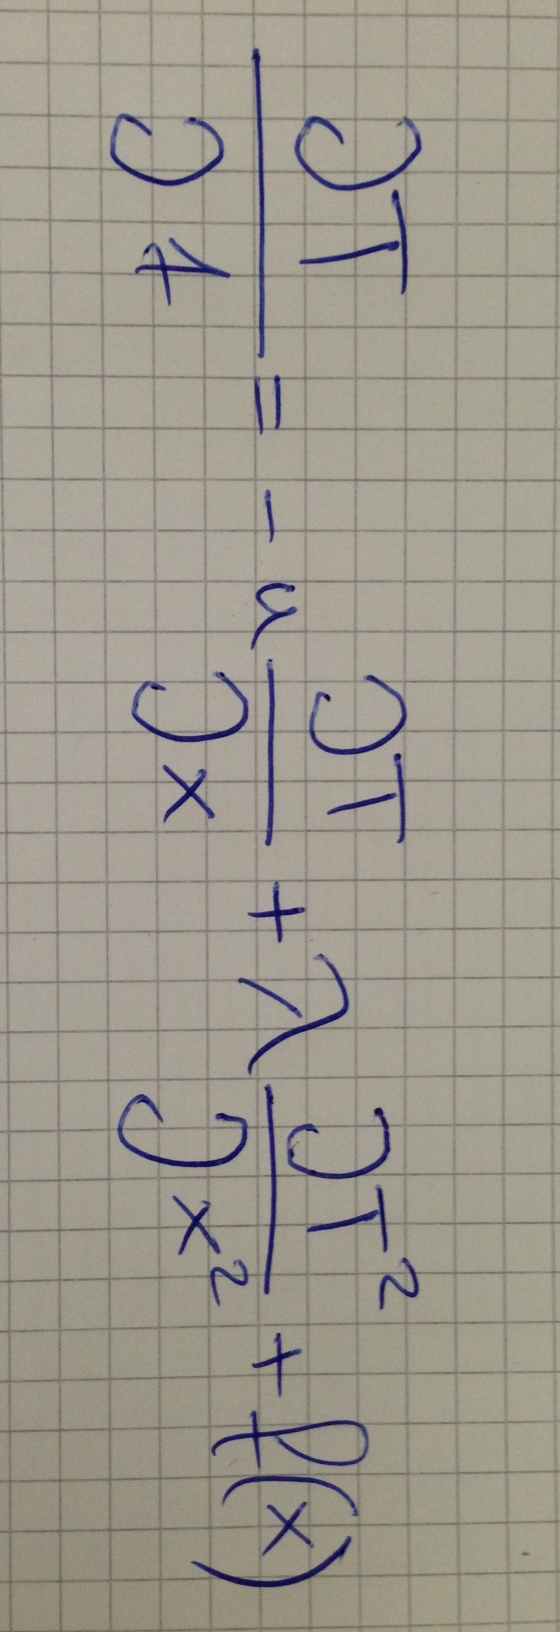 ∂T/∂t = - u ∂T/∂x + λ ∂T²/∂x² + f(x)